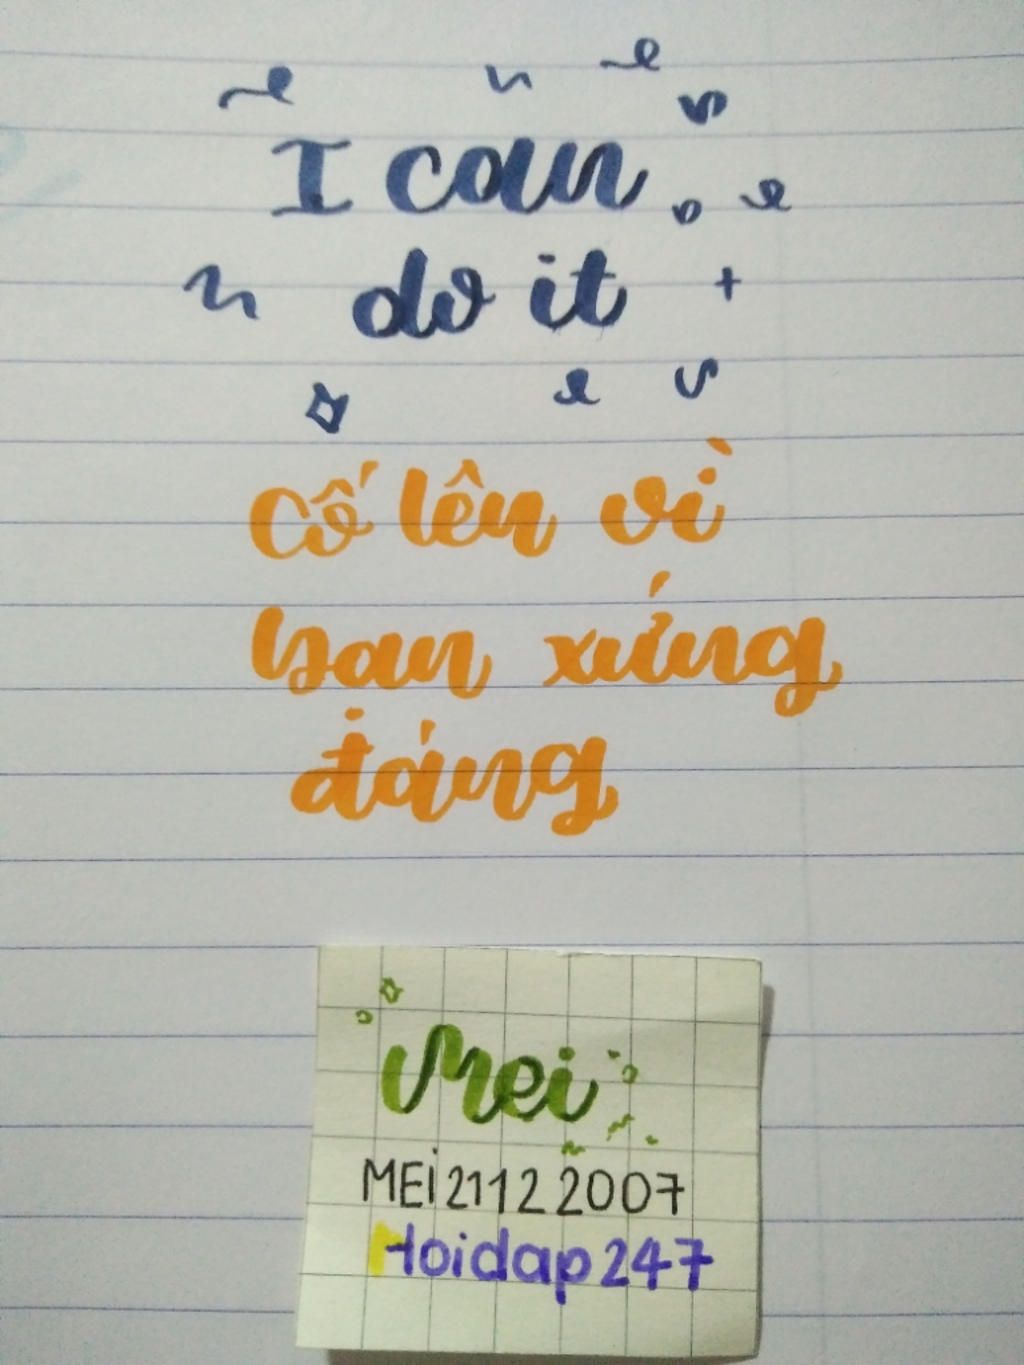 I can
do it
Cố lên vì
bạn xứng
đáng
Mei
MEi21122007
Hoidap247